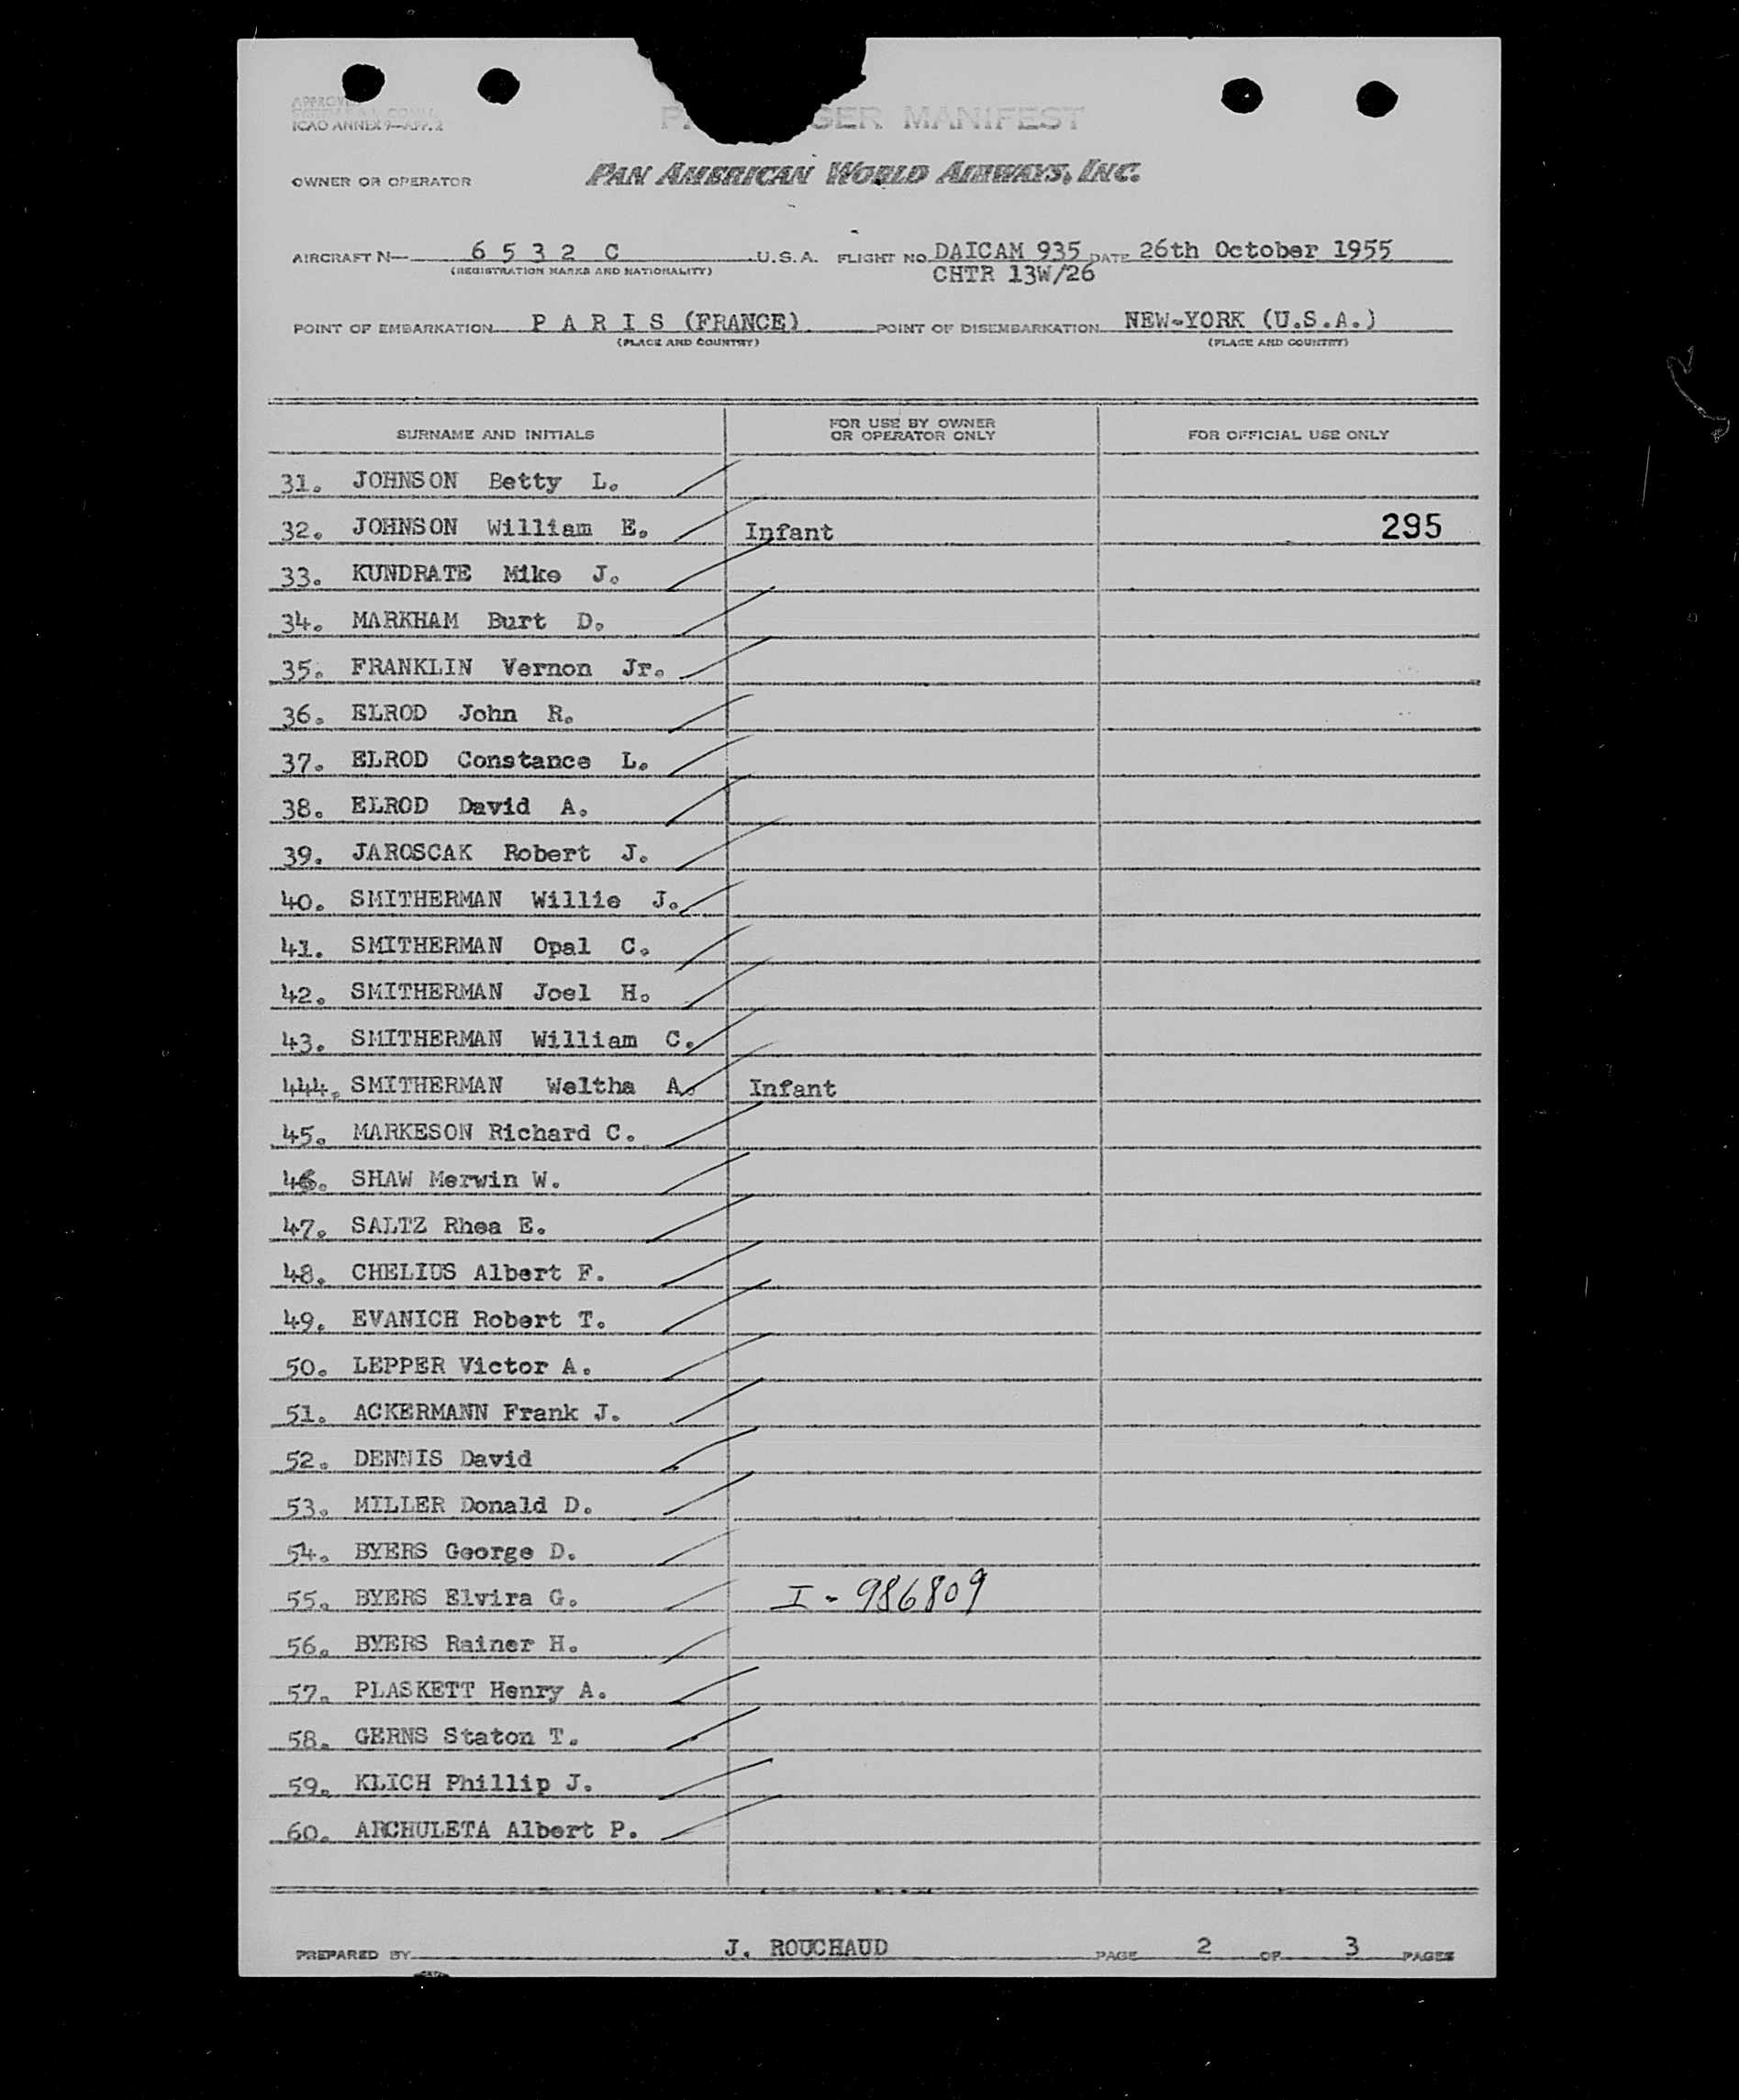 ICAO ANNEX 9—APP. 2
GER MANIFEST
OWNER OR OPERATOR PAN AMERICAN WORLD AIRWAYS, INC.
AIRCRAFT N— 6 5 3 2 C U.S.A. FLIGHT NO. DAICAM 935 DATE 26th October 1955
(REGISTRATION MARKS AND NATIONALITY) CHTR 13W/26
POINT OF EMBARKATION P A R I S (FRANCE) POINT OF DISEMBARKATION NEW-YORK (U.S.A.)
(PLACE AND COUNTRY) (PLACE AND COUNTRY)
SURNAME AND INITIALS FOR USE BY OWNER OR OPERATOR ONLY FOR OFFICIAL USE ONLY
31. JOHNSON Betty L.
32. JOHNSON William E. Infant 295
33. KUNDRATE Mike J.
34. MARKHAM Burt D.
35. FRANKLIN Vernon Jr.
36. ELROD John R.
37. ELROD Constance L.
38. ELROD David A.
39. JAROSCAK Robert J.
40. SMITHERMAN Willie J.
41. SMITHERMAN Opal C.
42. SMITHERMAN Joel H.
43. SMITHERMAN William C.
444. SMITHERMAN Weltha A. Infant
45. MARKESON Richard C.
46. SHAW Merwin W.
47. SALTZ Rhea E.
48. CHELIUS Albert F.
49. EVANICH Robert T.
50. LEPPER Victor A.
51. ACKERMANN Frank J.
52. DENNIS David
53. MILLER Donald D.
54. BYERS George D.
55. BYERS Elvira G. I - 986809
56. BYERS Rainer H.
57. PLASKETT Henry A.
58. GERNS Staton T.
59. KLICH Phillip J.
60. ARCHULETA Albert P.
PREPARED BY J. ROUCHAUD PAGE 2 OF 3 PAGES